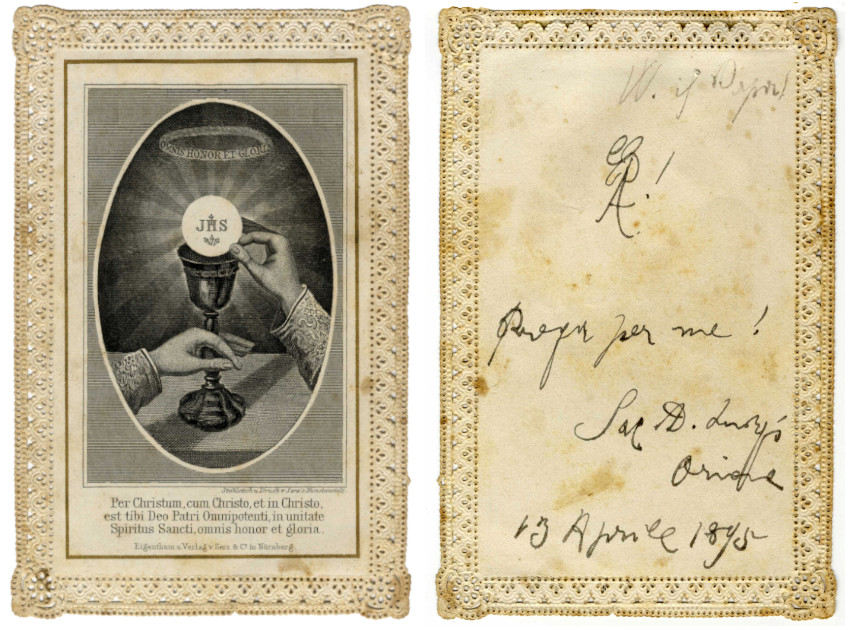 OMNIS HONOR ET GLORIA
JHS
Stahlstich u. Druck v. Serz
Per Christum, cum Christo, et in Christo,
est tibi Deo Patri Omnipotenti, in unitate
Spiritus Sancti, omnis honor et gloria.
Eigenthum u. Verlag v. Serz & Cº in Nürnberg.
W. il Papa!
A.!
Prega per me!
Sac D. Luigi
Orione
13 Aprile 1895